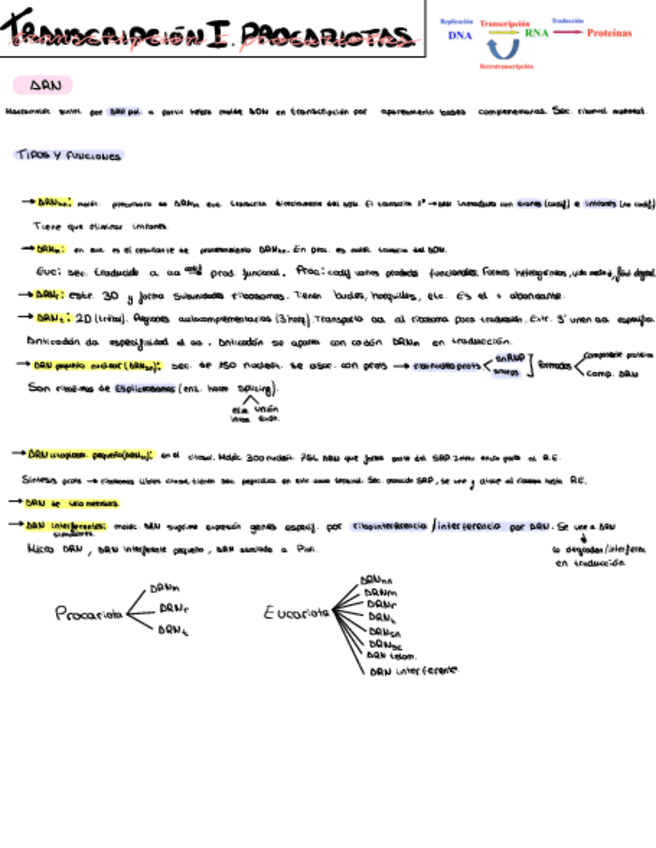 TRANSCRIPCIÓN I. PROCARIOTAS
Replicación Transcripción Traducción
DNA RNA Proteínas
Retrotranscripción
ARN
por ARN pol. a partir hebra molde ADN en transcripción por apareamiento bases complementarias. Sec.
TIPOS Y FUNCIONES
→ ARNhn: precursora de ARNm euc. transcrito directamente del ADN. El transcrito 1º → ARN inmaduro con exones (codif) e intrones (no codif)
Tiene que eliminar intrones.
→ ARNm: en euc. es el resultante de procesamiento ARNhn. En proc. es transcrita del ADN.
Euc: sec. traducida a aa codif prod. funcional. Proc: codif varios productos funcionales. Formas heterogéneas, vida media ↓, fácil degrad.
→ ARNr: estr. 3D y forma subunidades ribosomas. Tienen bucles, horquillas, etc. Es el + abundante.
→ ARNt: 2D (trébol). Regiones autocomplementarias (3 horq). Transporta aa al ribosoma para traducción. Extr. 3' unen aa específico.
Anticodón da especificidad al aa. Anticodón se aparea con codón ARNm en traducción.
→ ARN pequeño nuclear (ARNsn): sec. de 150 nucleót. se asoc. con prots → ribonucleoprots snRNP snurps formados Complejo proteico comp. ARN
Son ribozimas de Esplicosomas (enz. hacen splicing).
elim. intrones unión exon.
→ ARN citoplasm. pequeño (ARNsc): en el citosol. Moléc 300 nucleót. 7SL ARN que forma parte del SRP. envío prots al R.E.
Síntesis prots → ribosomas libres citosol tienen sec. peptídica en este terminal. Sec. SRP, se une y atrae al ribosoma hasta RE.
→ ARN de
→ ARN interferentes: moléc ARN suprime expresión genes específ. por ribointerferencia / interferencia por ARN. Se une a ARN
Micro ARN, ARN interferente pequeño, ARN asociado a Piwi.
lo degradan/interfiere
en traducción
Procariota ARNm ARNr ARNt
Eucariota ARNhn ARNm ARNr ARNt ARNsn ARNsc ARN telom. ARN interferente